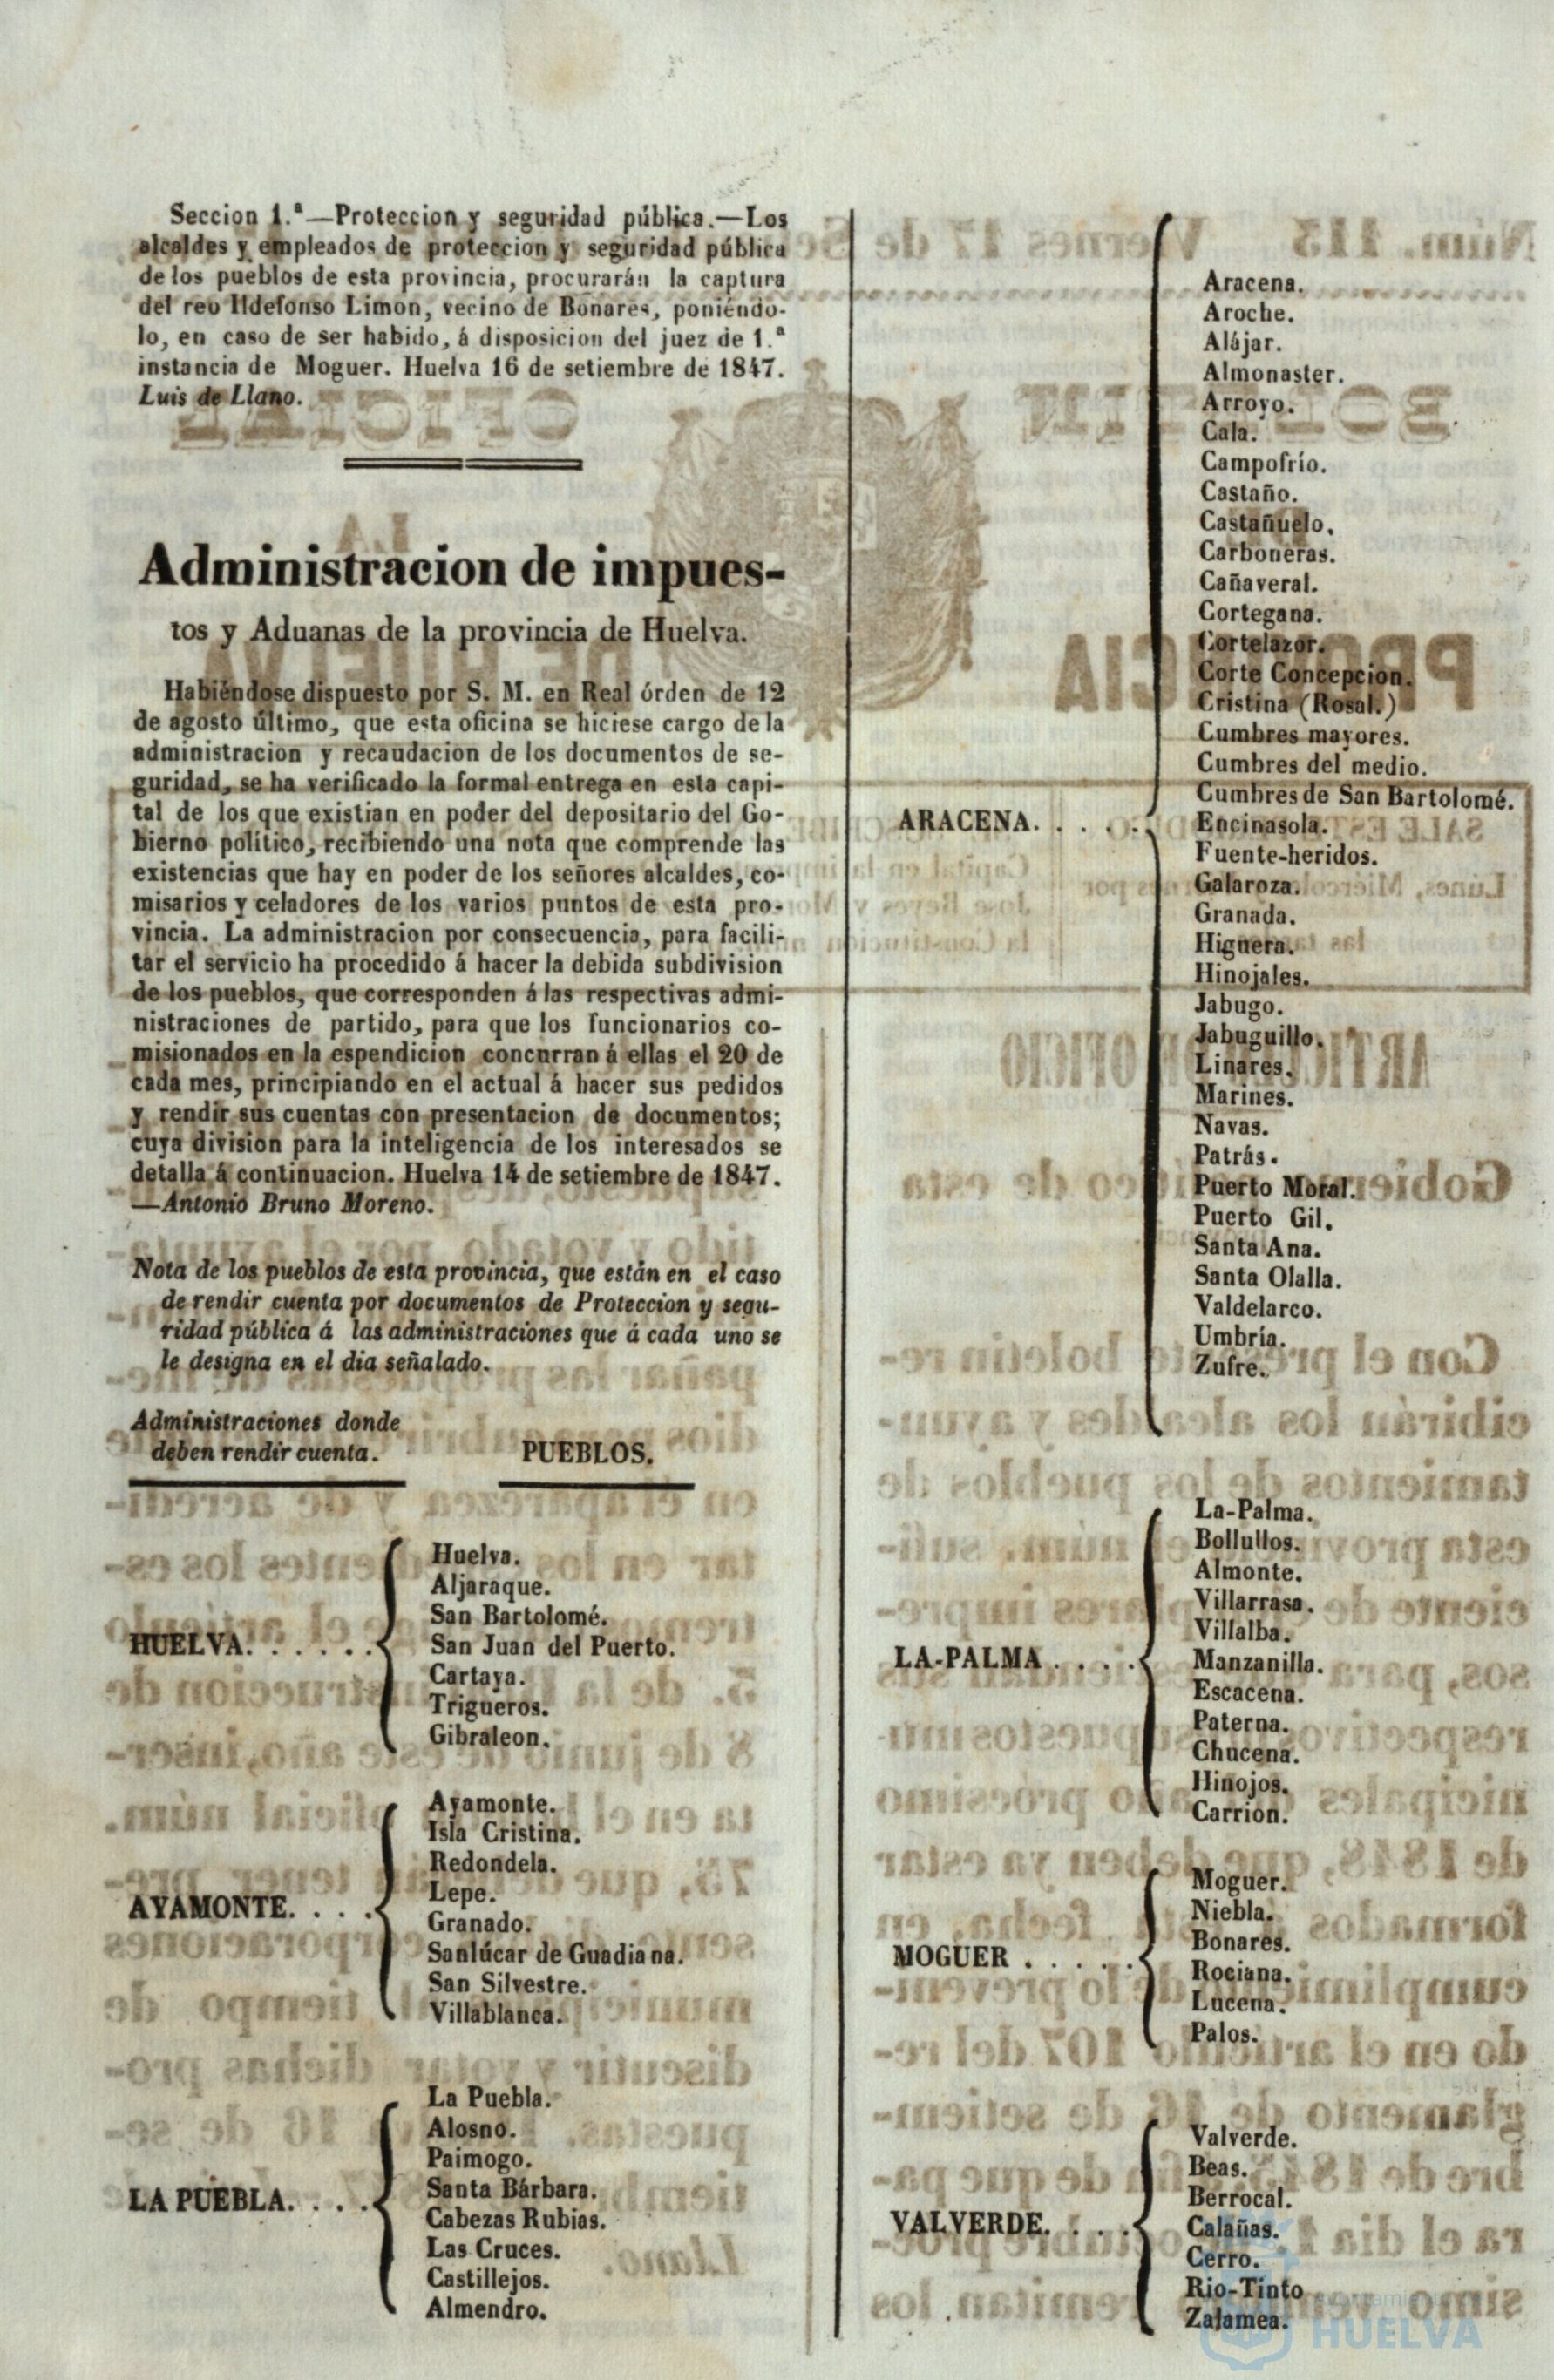 Seccion 1.ª—Proteccion y seguridad pública.—Los
alcaldes y empleados de proteccion y seguridad pública
de los pueblos de esta provincia, procurarán la captura
del reo Ildefonso Limon, vecino de Bonares, poniéndo-
lo, en caso de ser habido, á disposicion del juez de 1.ª
instancia de Moguer. Huelva 16 de setiembre de 1847.
Luis de Llano.
Administracion de impues-
tos y Aduanas de la provincia de Huelva.
Habiéndose dispuesto por S. M. en Real órden de 12
de agosto último, que esta oficina se hiciese cargo de la
administracion y recaudacion de los documentos de se-
guridad, se ha verificado la formal entrega en esta capi-
tal de los que existian en poder del depositario del Go-
bierno político, recibiendo una nota que comprende las
existencias que hay en poder de los señores alcaldes, co-
misarios y celadores de los varios puntos de esta pro-
vincia. La administracion por consecuencia, para facili-
tar el servicio ha procedido á hacer la debida subdivision
de los pueblos, que corresponden á las respectivas admi-
nistraciones de partido, para que los funcionarios co-
misionados en la espendicion concurran á ellas el 20 de
cada mes, principiando en el actual á hacer sus pedidos
y rendir sus cuentas con presentacion de documentos;
cuya division para la inteligencia de los interesados se
detalla á continuacion. Huelva 14 de setiembre de 1847.
—Antonio Bruno Moreno.
Nota de los pueblos de esta provincia, que están en el caso
de rendir cuenta por documentos de Proteccion y segu-
ridad pública á las administraciones que á cada uno se
le designa en el dia señalado.
Administraciones donde
deben rendir cuenta.
PUEBLOS.
HUELVA. . . . . .
Huelva.
Aljaraque.
San Bartolomé.
San Juan del Puerto.
Cartaya.
Trigueros.
Gibraleon.
AYAMONTE. . . .
Ayamonte.
Isla Cristina.
Redondela.
Lepe.
Granado.
Sanlúcar de Guadiana.
San Silvestre.
Villablanca.
LA PUEBLA. . . .
La Puebla.
Alosno.
Paimogo.
Santa Bárbara.
Cabezas Rubias.
Las Cruces.
Castillejos.
Almendro.
ARACENA. . . . .
Aracena.
Aroche.
Alájar.
Almonaster.
Arroyo.
Cala.
Campofrío.
Castaño.
Castañuelo.
Carboneras.
Cañaveral.
Cortegana.
Cortelazor.
Corte Concepcion.
Cristina (Rosal.)
Cumbres mayores.
Cumbres del medio.
Cumbres de San Bartolomé.
Encinasola.
Fuente-heridos.
Galaroza.
Granada.
Higuera.
Hinojales.
Jabugo.
Jabuguillo.
Linares.
Marines.
Navas.
Patrás.
Puerto Moral.
Puerto Gil.
Santa Ana.
Santa Olalla.
Valdelarco.
Umbría.
Zufre.
LA-PALMA . . . .
La-Palma.
Bollullos.
Almonte.
Villarrasa.
Villalba.
Manzanilla.
Escacena.
Paterna.
Chucena.
Hinojos.
Carrion.
MOGUER . . . . .
Moguer.
Niebla.
Bonares.
Rociana.
Lucena.
Palos.
VALVERDE. . . .
Valverde.
Beas.
Berrocal.
Calañas.
Cerro.
Rio-Tinto
Zalamea.
HUELVA